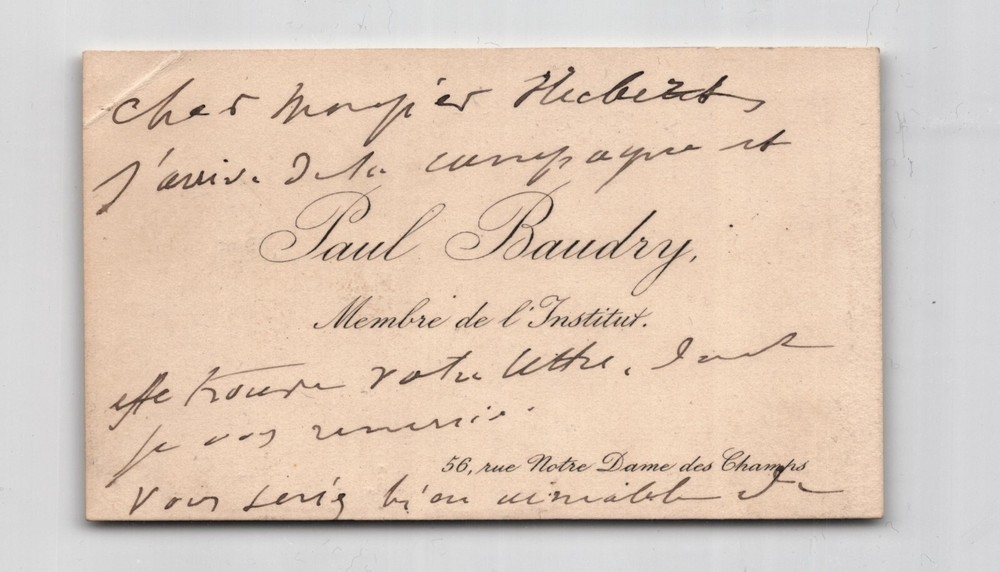 Cher Monsier Hubert,
j'arrive de la campagne et
Paul Baudry,
Membre de l'Institut.
je trouve votre lettre, dont
je vous remercie.
56, rue Notre Dame des Champs
Vous seriez bien aimable de